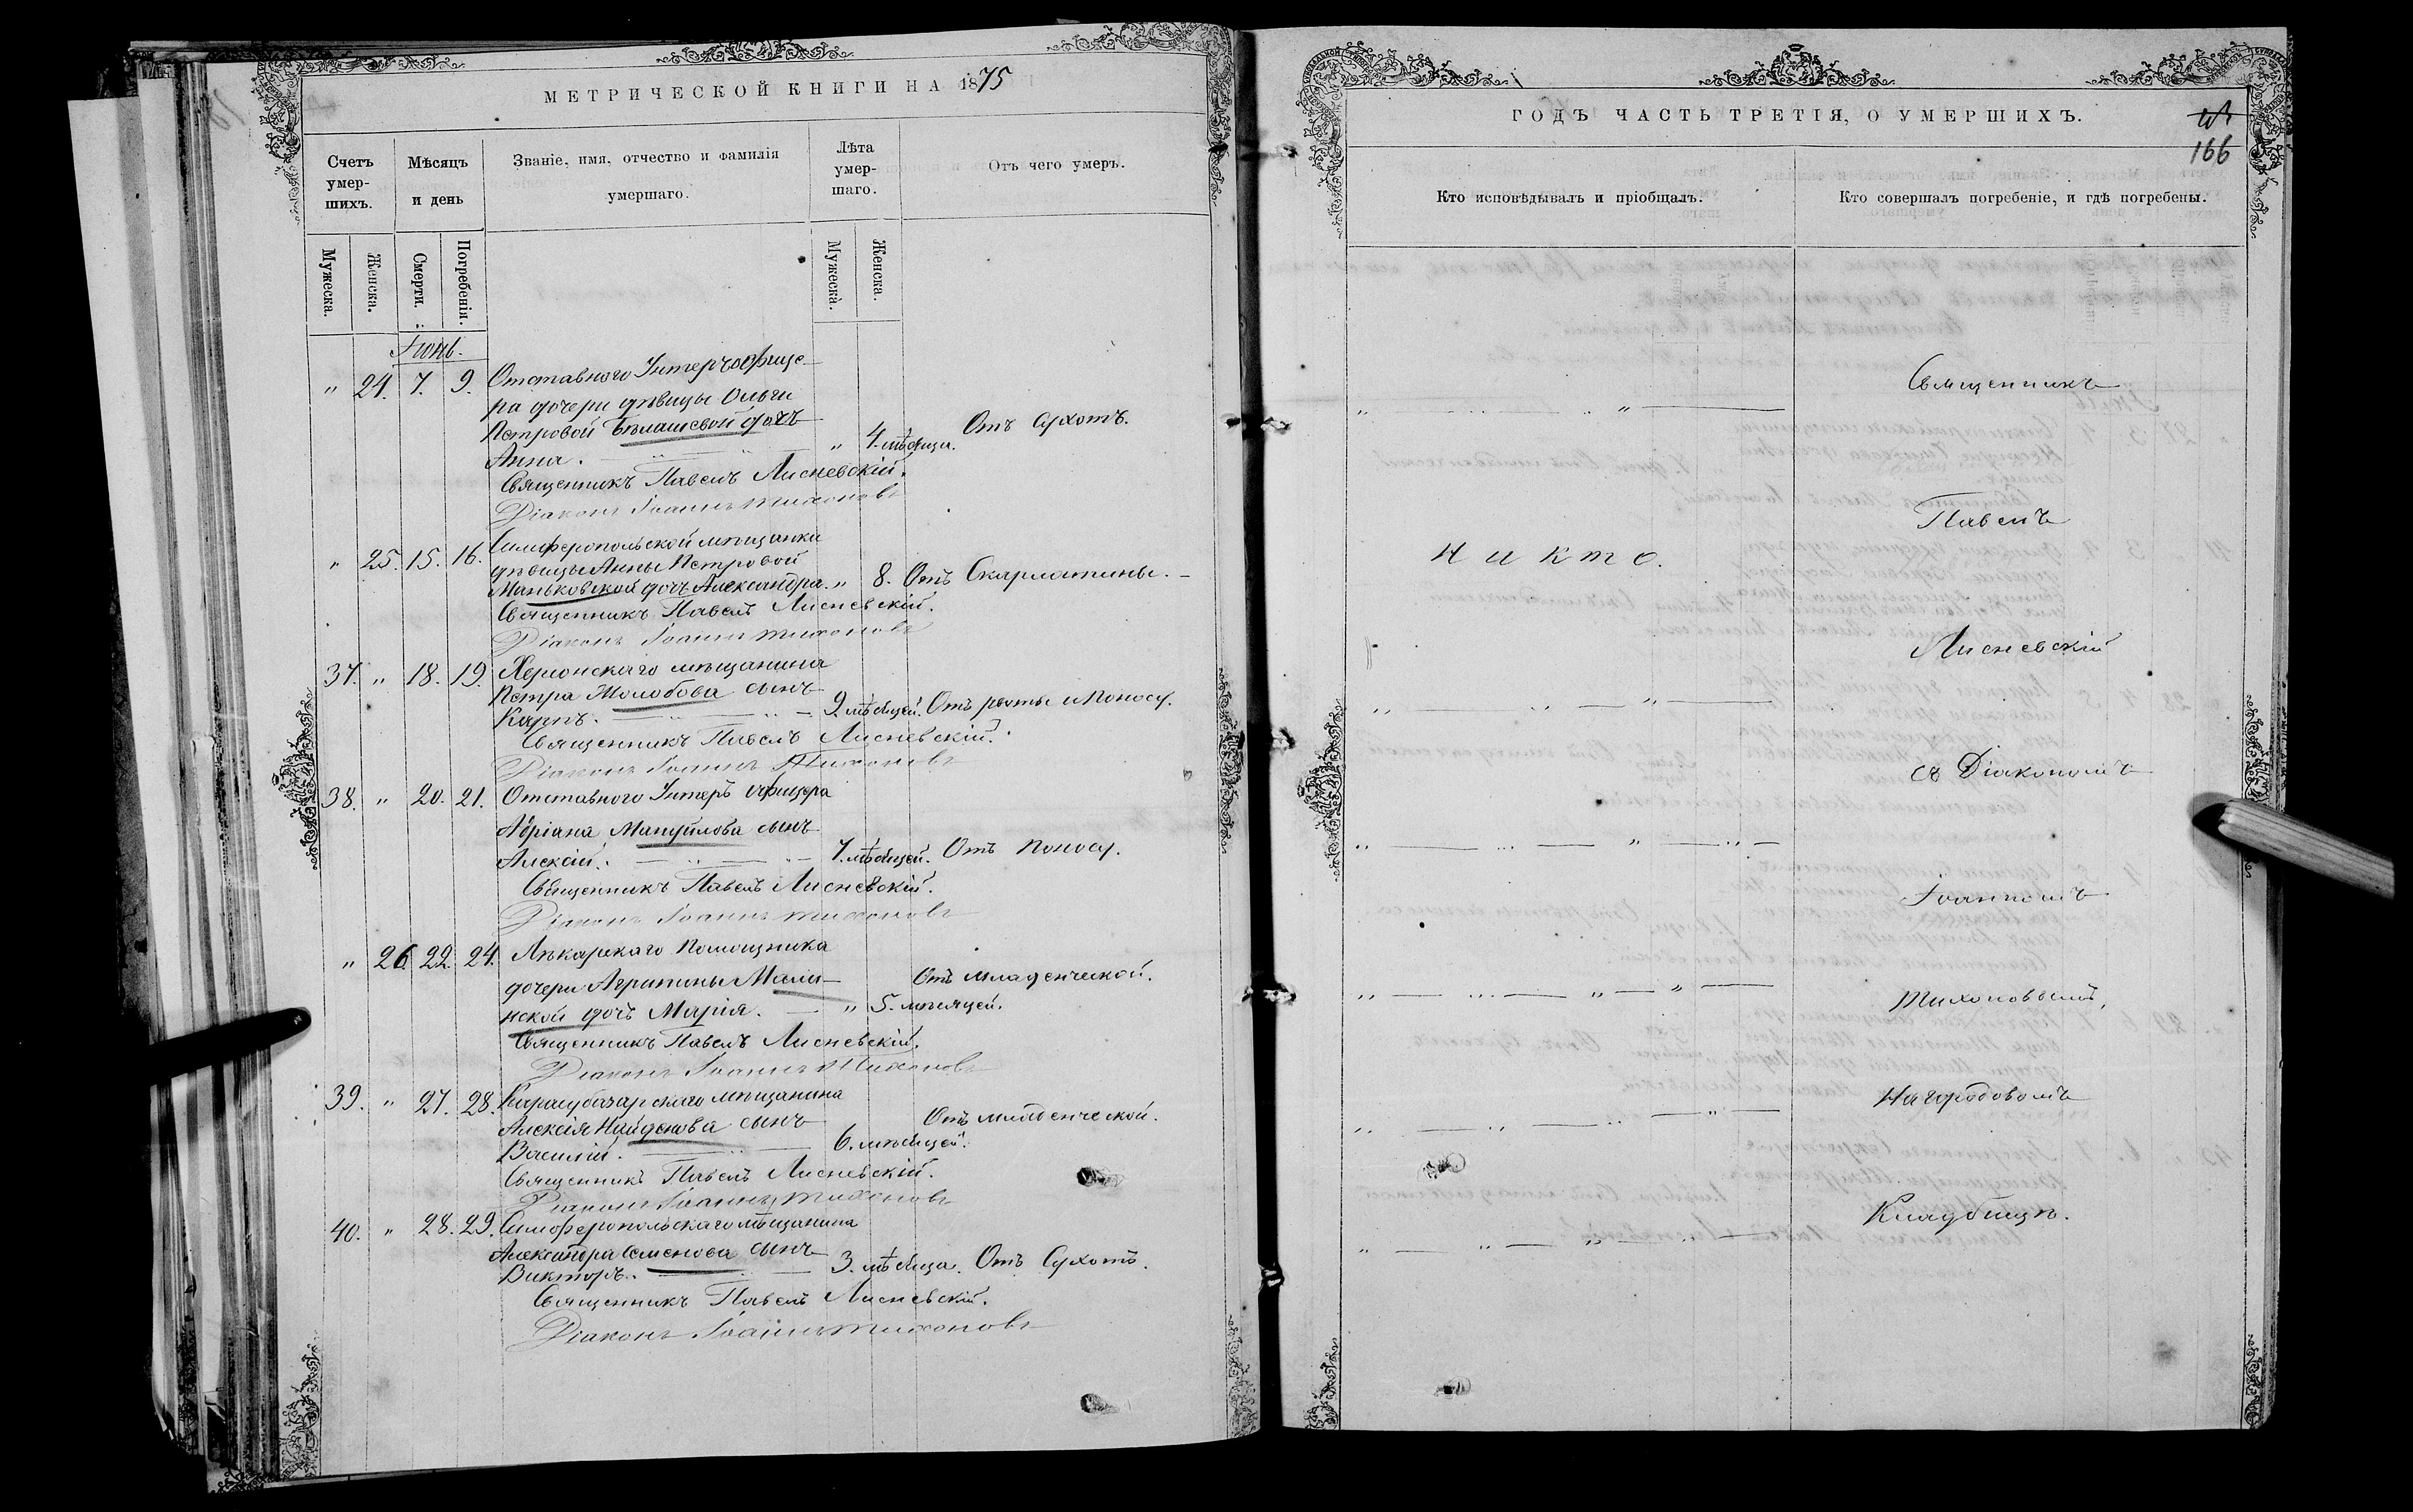 МЕТРИЧЕСКОЙ КНИГИ НА 1875
Счетъ умер-шихъ.
Мѣсяцъ и день
Званіе, имя, отчество и фамилія умершаго.
Лѣта умер-шаго.
Отъ чего умеръ.
Мужеска.
Женска.
Смерти.
Погребенія.
Мужеска.
Женска.
Іюнь.
" 24. 7. 9. Отставного Унтеръ офице-
ра дочери дѣвицы Ольги
Петровой Бѣлашевой дочь
Анна. " 4. мѣсяца. Отъ Сухотъ.
Священникъ Павелъ Лисневскій.
Діаконъ Іоаннъ Тихоновъ
" 25. 15. 16. Симферопольской мѣщанки
дѣвицы Анны Петровой
Маньковской дочь Александра. " 8. Отъ Скарлатины.
Священникъ Павелъ Лисневскій.
Діаконъ Іоаннъ Тихоновъ
37. " 18. 19. Херсонскаго мѣщанина
Петра Молобова сынъ
Карпъ. 9. мѣсяцей. Отъ рвоты и Поносу.
Священникъ Павелъ Лисневскій.
Діаконъ Іоаннъ Тихоновъ
38. " 20. 21. Отставного Унтеръ Офицера
Адріана Мануйлова сынъ
Алексій. 7. мѣсяцей. Отъ Поносу.
Священникъ Павелъ Лисневскій.
Діаконъ Іоаннъ Тихоновъ
" 26. 22. 24. Лѣкарскаго Помощника
дочери Агрипины Мали-
нской дочь Марія. " 5. мѣсяцей. Отъ Младенческой.
Священникъ Павелъ Лисневскій.
Діаконъ Іоаннъ Тихоновъ
39. " 27. 28. Карасубазарскаго мѣщанина
Алексія Найденова сынъ
Василій. 6. мѣсяцей. Отъ младенческой.
Священникъ Павелъ Лисневскій.
Діаконъ Іоаннъ Тихоновъ
40. " 28. 29. Симферопольскаго мѣщанина
Александра Семенова сынъ
Викторъ. 3. мѣсяца. Отъ Сухотъ.
Священникъ Павелъ Лисневскій.
Діаконъ Іоаннъ Тихоновъ
ГОДЪ ЧАСТЬ ТРЕТІЯ, О УМЕРШИХЪ.
166
Кто исповѣдывалъ и пріобщалъ.
Кто совершалъ погребеніе, и гдѣ погребены.
Никто.
Священникъ
Павелъ
Лисневскій
съ Діакономъ
Іоанномъ
Тихоновымъ,
На городовомъ
Кладбищѣ.